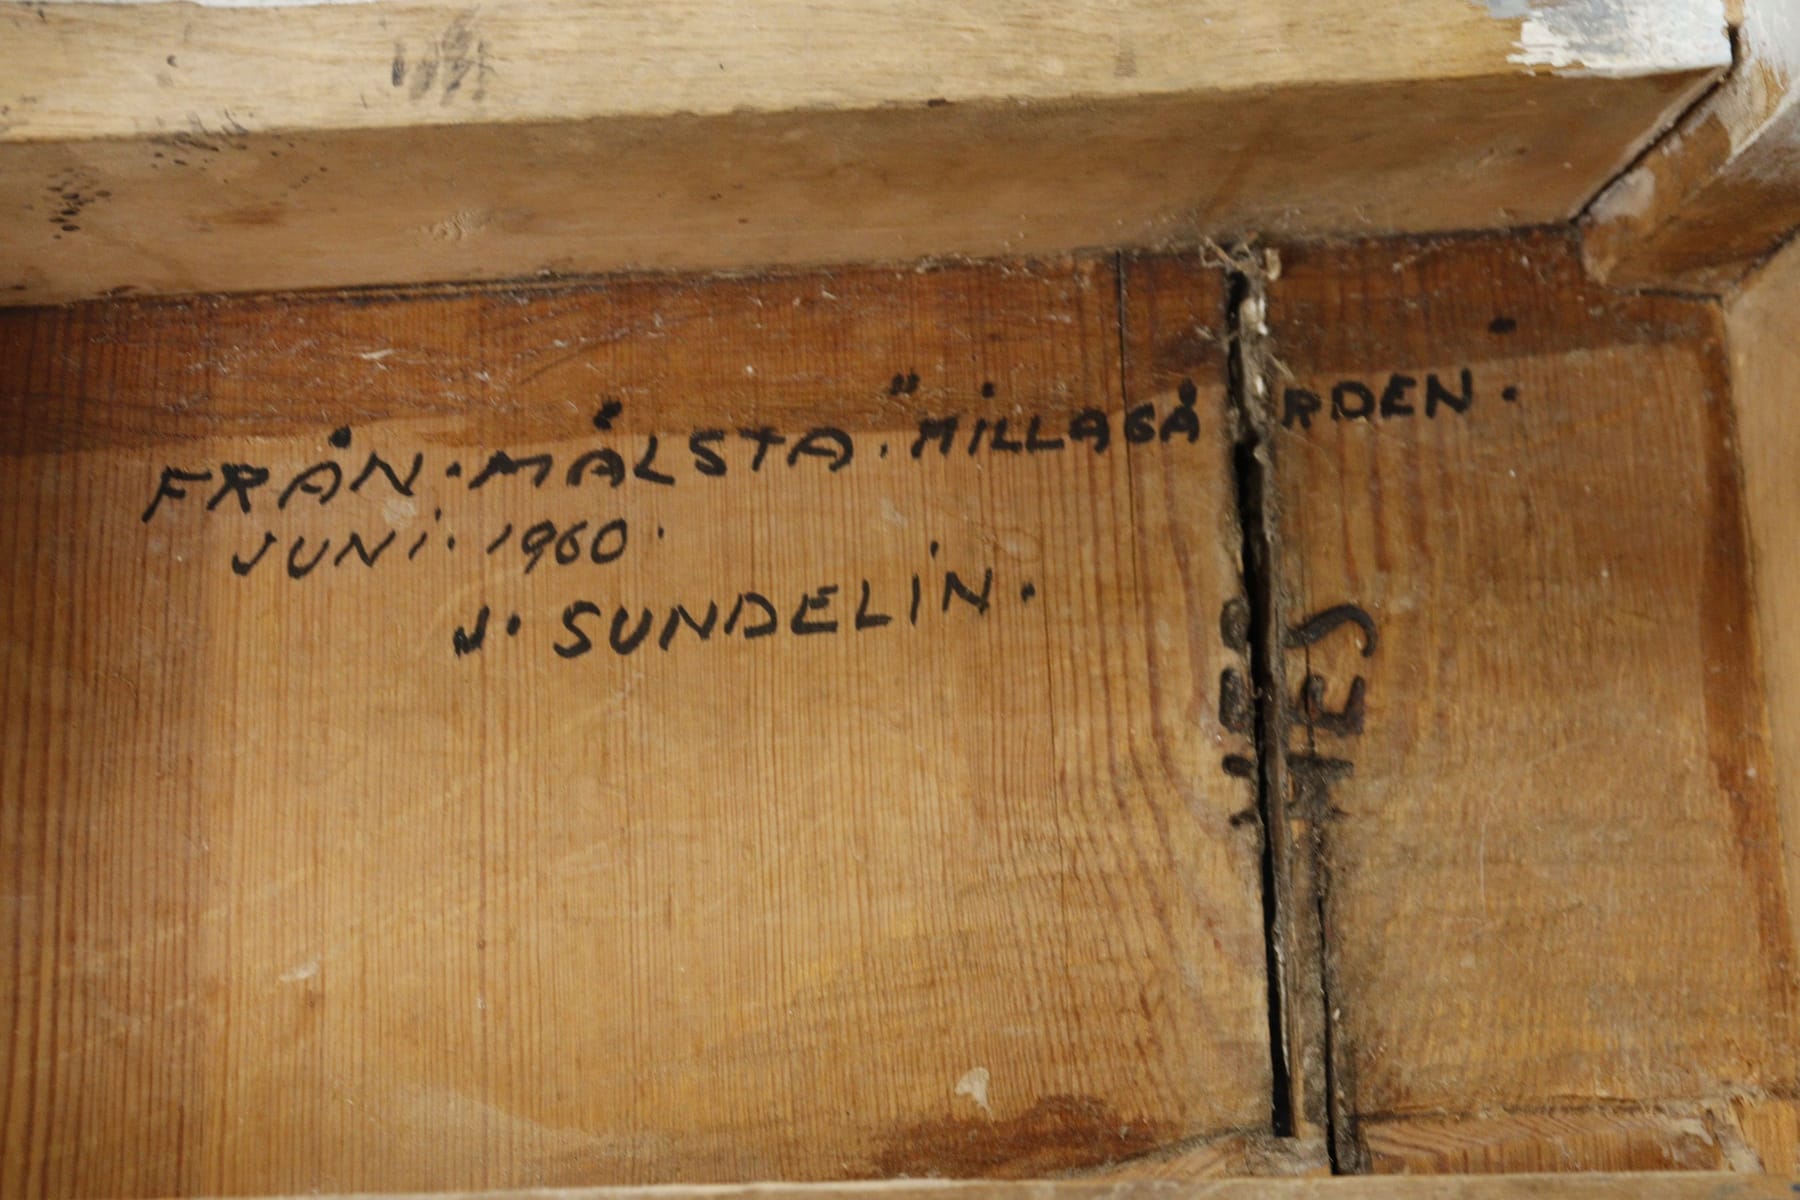 FRÅN. MÅLSTA. "MILLAGÅRDEN.
JUNI. 1960.
J. SUNDELIN.